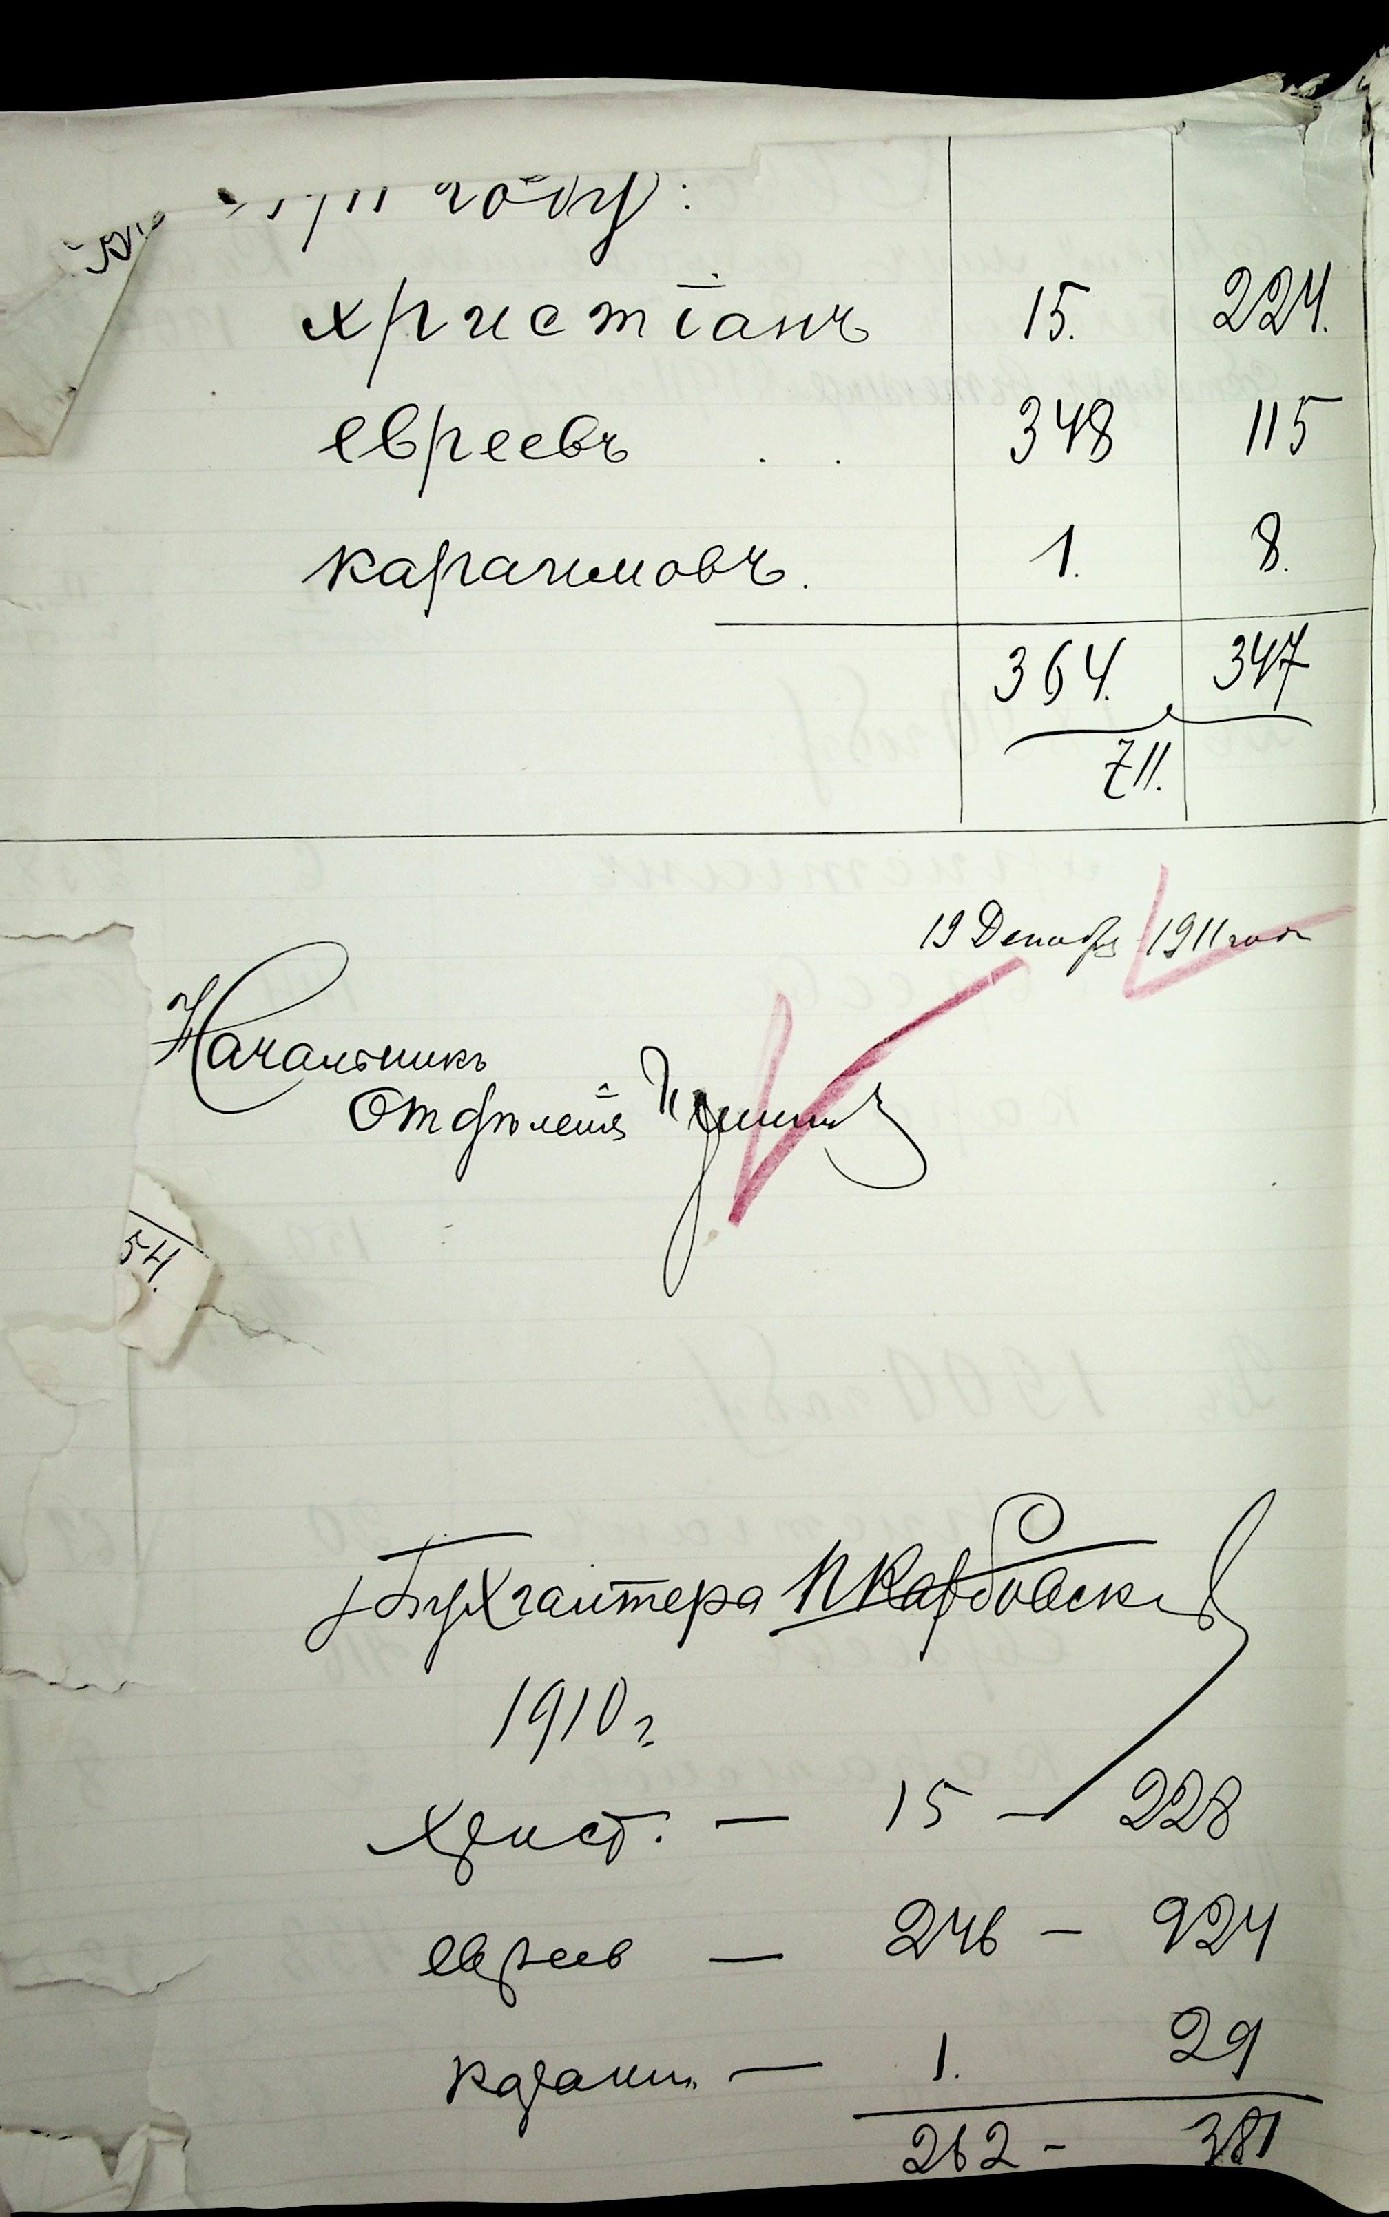 1911 году:
христіанъ 15. 224.
евреевъ . . 348 115
караимовъ. 1. 8.
364. 347
711.
19 Декабря 1911 года
Начальникъ
Отдѣленія
54.
Бухгалтера
1910 г
Христ. — 15 — 228
евреев — 246 — 924
караим. — 1. 29
262 - 381